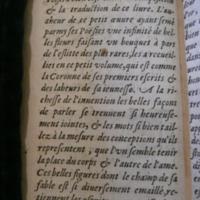 & la traduction de ce liure. L'au
theur de ce petit œuure ayant semé
parmy ses Poësies vne infinité de bel
les fleurs faisant vn bouquet à part
de l'eslite des plus rares, les a recueilli
es en ce petit volume, qui est comme
la Coronne de ses premiers escrits &
des labeurs de sa ieunesse. A la ri
chesse de l'inuention les belles façons
de parler se trouuent si heureuse
ment iointes, & les mots si bien tail
lez à la mesure des conceptions qu'ils
representent, que l'vn semble tenir
la place du corps & l'autre de l'ame.
Ces belles figures dont le champ de sa
fable est si diuersement emaillé, re